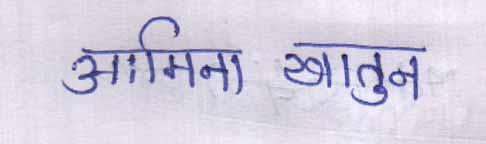 आमिना खातुन